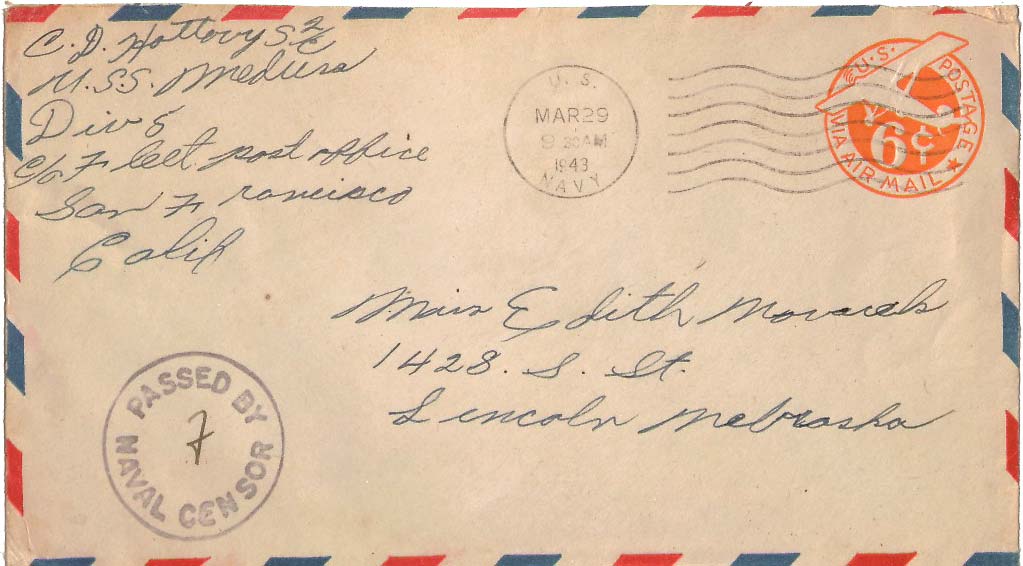 C. D. Hottovy S 2/c
U.S.S. Medusa
Div 5
c/o Fleet post office
San Francisco
Calif
U. S.
MAR 29
9 30 AM
1943
NAVY
U.S. POSTAGE
6¢
VIA AIR MAIL
Miss Edith Moravek
1428. S. St.
Lincoln Nebraska
PASSED BY
NAVAL CENSOR